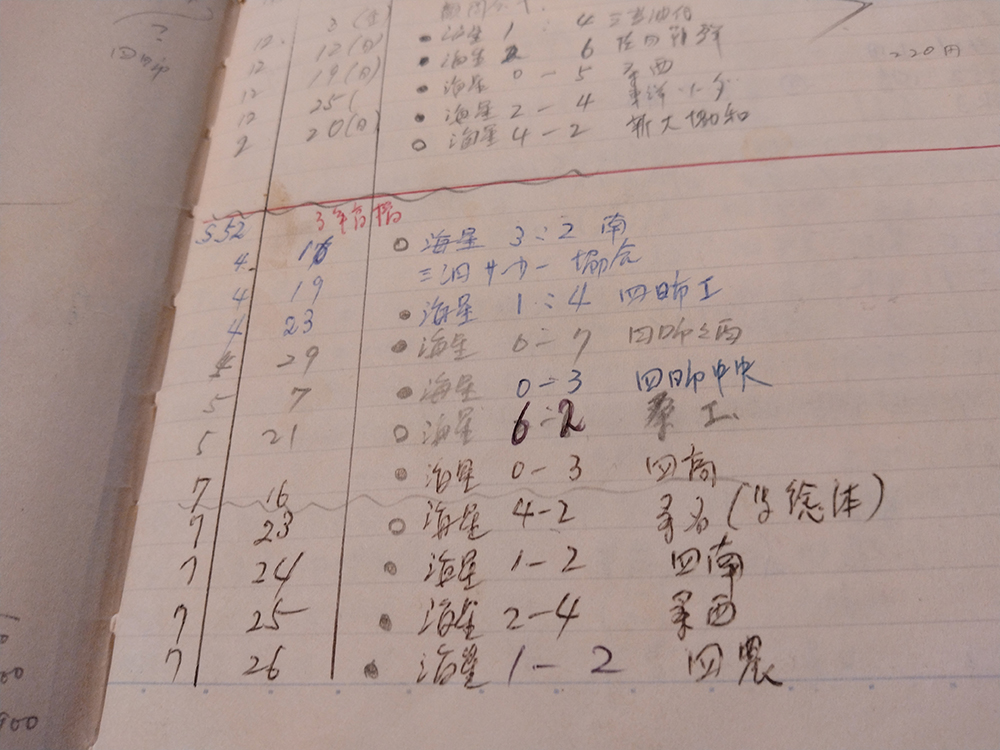 12 3(土) 海星 1 : 4
12 12(日) 海星 2 6
12 19(日) 海星 0-5 桑西
12 25( 海星 2-4
2 20(日) 海星 4-2 新大協和
220円
S52 3年高指
4 16 海星 3:2 南
4 19 三泗サッカー協会
4 23 海星 1:4 四日市工
4 29 海星 0-7 四日市西
5 7 海星 0-3 四日市中央
5 21 海星 6-2 桑工
7 16 海星 0-3 四高
7 23 海星 4-2 桑名(学総体)
7 24 海星 1-2 四南
7 25 海星 2-4 桑西
7 26 海星 1-2 四農